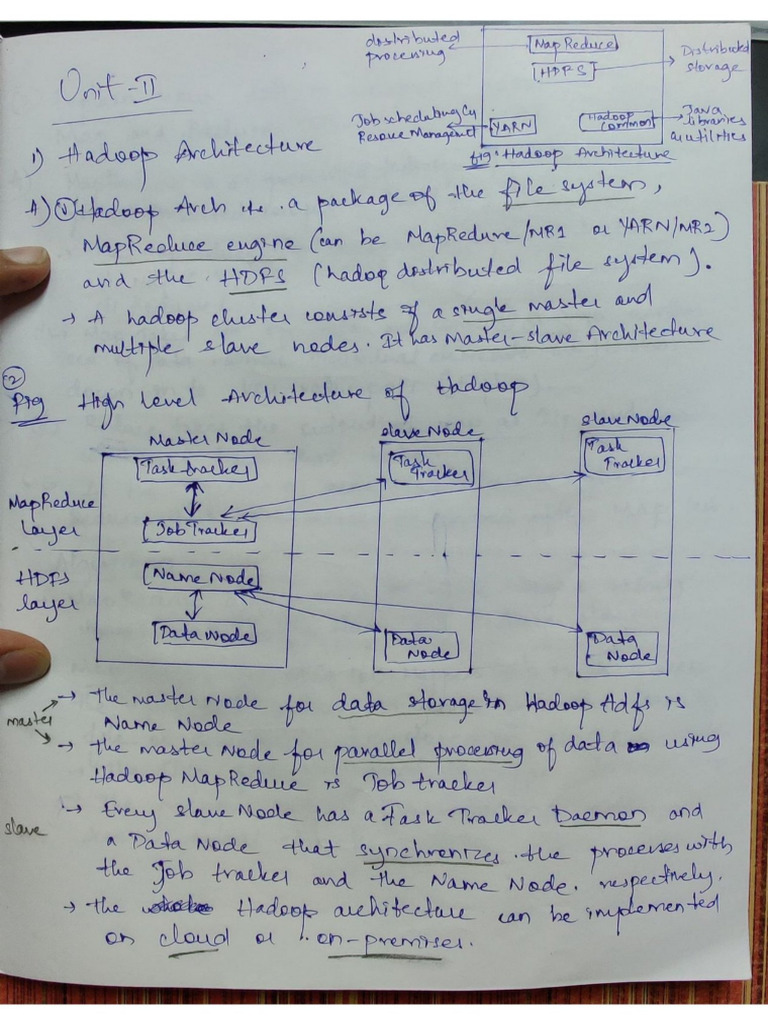 Unit - II
distributed processing
MapReduce
HDFS
Distributed storage
Job scheduling &
Resource Management
YARN
Hadoop Common
Java libraries & utilities
fig: Hadoop Architecture
1) Hadoop Architecture
A) ① Hadoop Arch is a package of the file system,
MapReduce engine (can be MapReduce/MR1 or YARN/MR2)
and the HDFS (hadoop distributed file system).
→ A hadoop cluster consists of a single master and
multiple slave nodes. It has Master-slave Architecture
②
Fig High level Architecture of Hadoop
Master Node
Slave Node
Slave Node
Task tracker
Task Tracker
Task Tracker
MapReduce layer
Job Tracker
HDFS layer
Name Node
Data Node
Data Node
Data Node
master
→ the master Node for data storage in Hadoop Hdfs is
Name Node
→ the master Node for parallel processing of data using
Hadoop MapReduce is Job tracker
slave
→ Every slave Node has a Task Tracker Daemon and
a Data Node that synchronizes the processes with
the Job tracker and the Name Node. respectively.
→ the Hadoop architecture can be implemented
on cloud or on-premises.